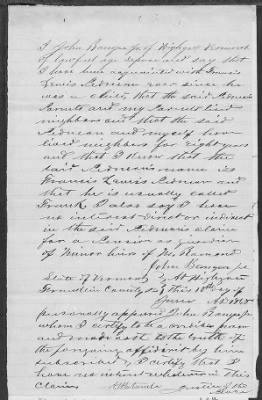 I John Bangea Jr of Highgate Vermont
of lawful age depose and say that
I have been acquainted with Francis
Lewis Redmean ever since he
was a child, that the said
Parents and my Parents lived
neighbors and that the said
Redmean and myself have
lived neighbors for eight years
and that I know that the
said Redmean's name is
Francis Lewis Redmean and
that he is usually called
Frank. I also say I have
no interest direct or indirect
in the said Redmean's claim
for a Pension as guardian
of minor heirs of M.
John Bangea Jr
State of Vermont At Highgate
Franklin County this 18th day of
June AD
personally appeared John Bangea Jr
whom I certify to be a credible person
and made oath to the truth of
the foregoing affidavit by him
subscribed & I certify that I
have no interest whatever in this
Claim
Justice of the
Peace